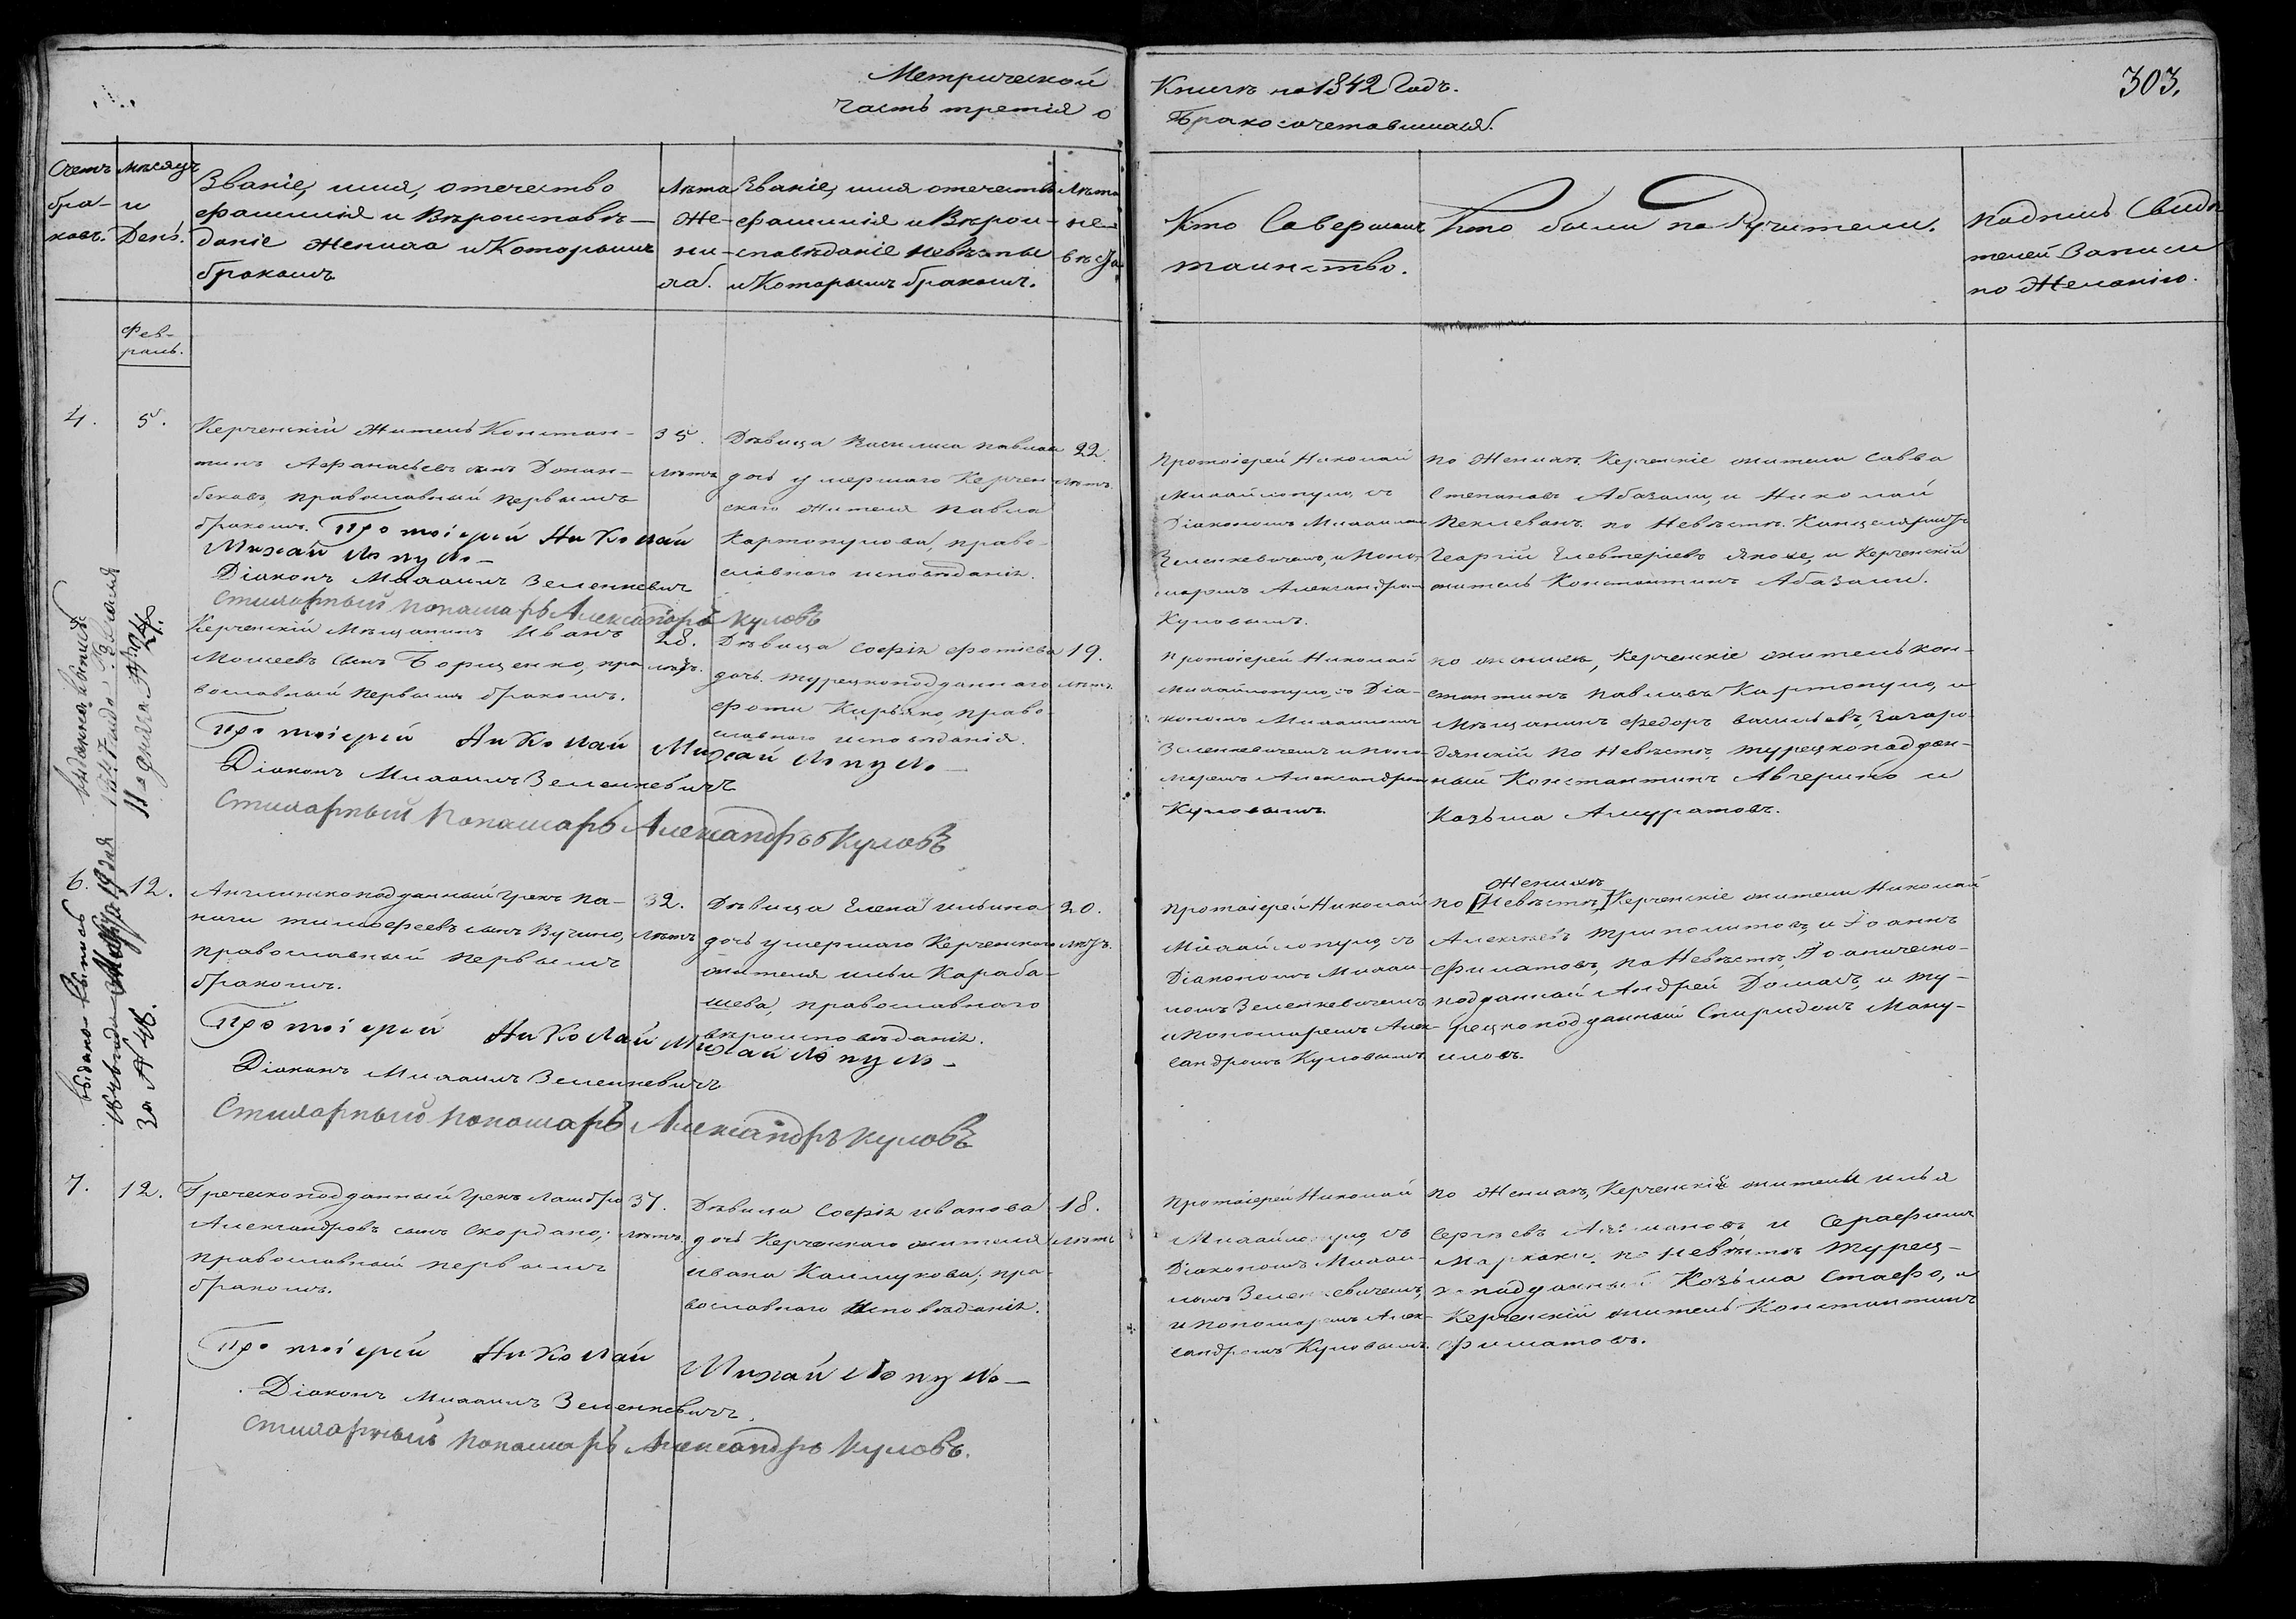 Метрической
часть третія о
Книги на 1842 Годъ.
Бракосочетавшихся.
303.
Счетъ бра-ковъ.
Мѣсяцъ и День.
Званіе, имя, отечество
фамилія и Вѣроисповѣ-
даніе Жениха и Которымъ
бракомъ
Лѣта Же-ни-ха.
Званіе, имя отечество
фамилія и Вѣрои-
сповѣданіе невѣсты
и Которымъ бракомъ.
Лѣта не-вѣсты
Кто Совершалъ
таинство.
Кто были поручители.
Подпись Свидѣ
телей Записи
по Желанію.
Фев-
раль.
4.
5.
Керченскій Житель Констан-
тинъ Афанасьевъ сынъ
бековъ, православный первымъ
бракомъ. Протоіерей Николай
Михайлопуло
Діаконъ Михаилъ Зеленкевичъ
Стихарный Пономарь Александръ Куловъ
35.
лѣтъ
Дѣвица Василиса Павлова
дочь умершаго Керчен
скаго жителя Павла
Картопулова, право-
славнаго исповѣданія.
22.
лѣтъ.
Протоіерей Николай
Михайлопуло, съ
Діакономъ Михаиломъ
Зеленкевичемъ, и Поно-
маремъ Александромъ
Куловымъ.
По Женихѣ Керченскіе жители Савва
Степановъ Абазали, и Николай
Пехлеванъ. по Невѣстѣ. Канцеляристъ
Георгій Елевтеріевъ, и Керченскій
житель Константинъ Абазали.
Керченскій Мѣщанинъ Иванъ
Мосеевъ сынъ Борщенко, пра
вославный первымъ бракомъ.
Протоіерей Николай Михайлопуло
Діаконъ Михаилъ Зеленкевичъ
Стихарный Пономарь Александръ Куловъ
28.
лѣтъ.
Дѣвица Софія Фотіева
дочь. турецкоподданнаго
Фоти Кирьяко, право-
славнаго исповѣданія.
19.
лѣтъ.
Протоіерей Николай
Михайлопуло, съ Діа-
кономъ Михаиломъ
Зеленкевичемъ и Поно-
маремъ Александромъ
Куловымъ
по женихѣ, Керченскіе житель Кон-
стантинъ Павловъ Картопуло, и
Мѣщанинъ Федоръ Васильевъ,
по Невѣстѣ, турецкоподдан-
ный Константинъ Авгерино и
Козьма Амуратовъ.
1847 года
11
24.
6.
12.
Англинскоподданный Грекъ Па-
наги Тимофеевъ сынъ Вучино,
православный первымъ
бракомъ.
Протоіерей Николай Михайлопуло
Діаконъ Михаилъ Зеленкевичъ
Стихарный Пономарь Александръ Куловъ
32.
лѣтъ
Дѣвица Елена Ильина
дочь умершаго Керченскаго
жителя Ильи Караба-
шева, православнаго
вѣроисповѣданія.
20.
лѣтъ.
Протоіерей Николай
Михайлопуло, съ
Діакономъ Михаи-
ломъ Зеленкевичемъ
и Пономаремъ Алек-
сандромъ Куловымъ
Женихѣ
по [Невѣстѣ] Керченскіе жители Николай
Алексѣевъ Триполитовъ, и Іоаннъ
Филатовъ, по Невѣстѣ, Іоаническо-
подданный Андрей, и ту-
рецкоподданный Спиридонъ Ману-
иловъ.
7.
12.
Греческоподданный Грекъ Ламбро
Александровъ сынъ Скордано,
православный первымъ
бракомъ.
Протоіерей Николай Михайлопуло
Діаконъ Михаилъ Зеленкевичъ
Стихарный Пономарь Александръ Куловъ.
37.
лѣтъ.
Дѣвица Софія Иванова
дочь Керченскаго жителя
Ивана Калмукова; пра-
вославнаго исповѣданія.
18.
лѣтъ
Протоіерей Николай
Михайлопуло, съ
Діакономъ Михаи-
ломъ Зеленкевичемъ,
и Пономаремъ Алек-
сандромъ Куловымъ.
по Женихѣ, Керченскій жители Илья
Сергѣевъ и Серафимъ
по Невѣстѣ Турец-
коподданный Козьма Стафо, и
Керченскій житель Константинъ
Филатовъ.